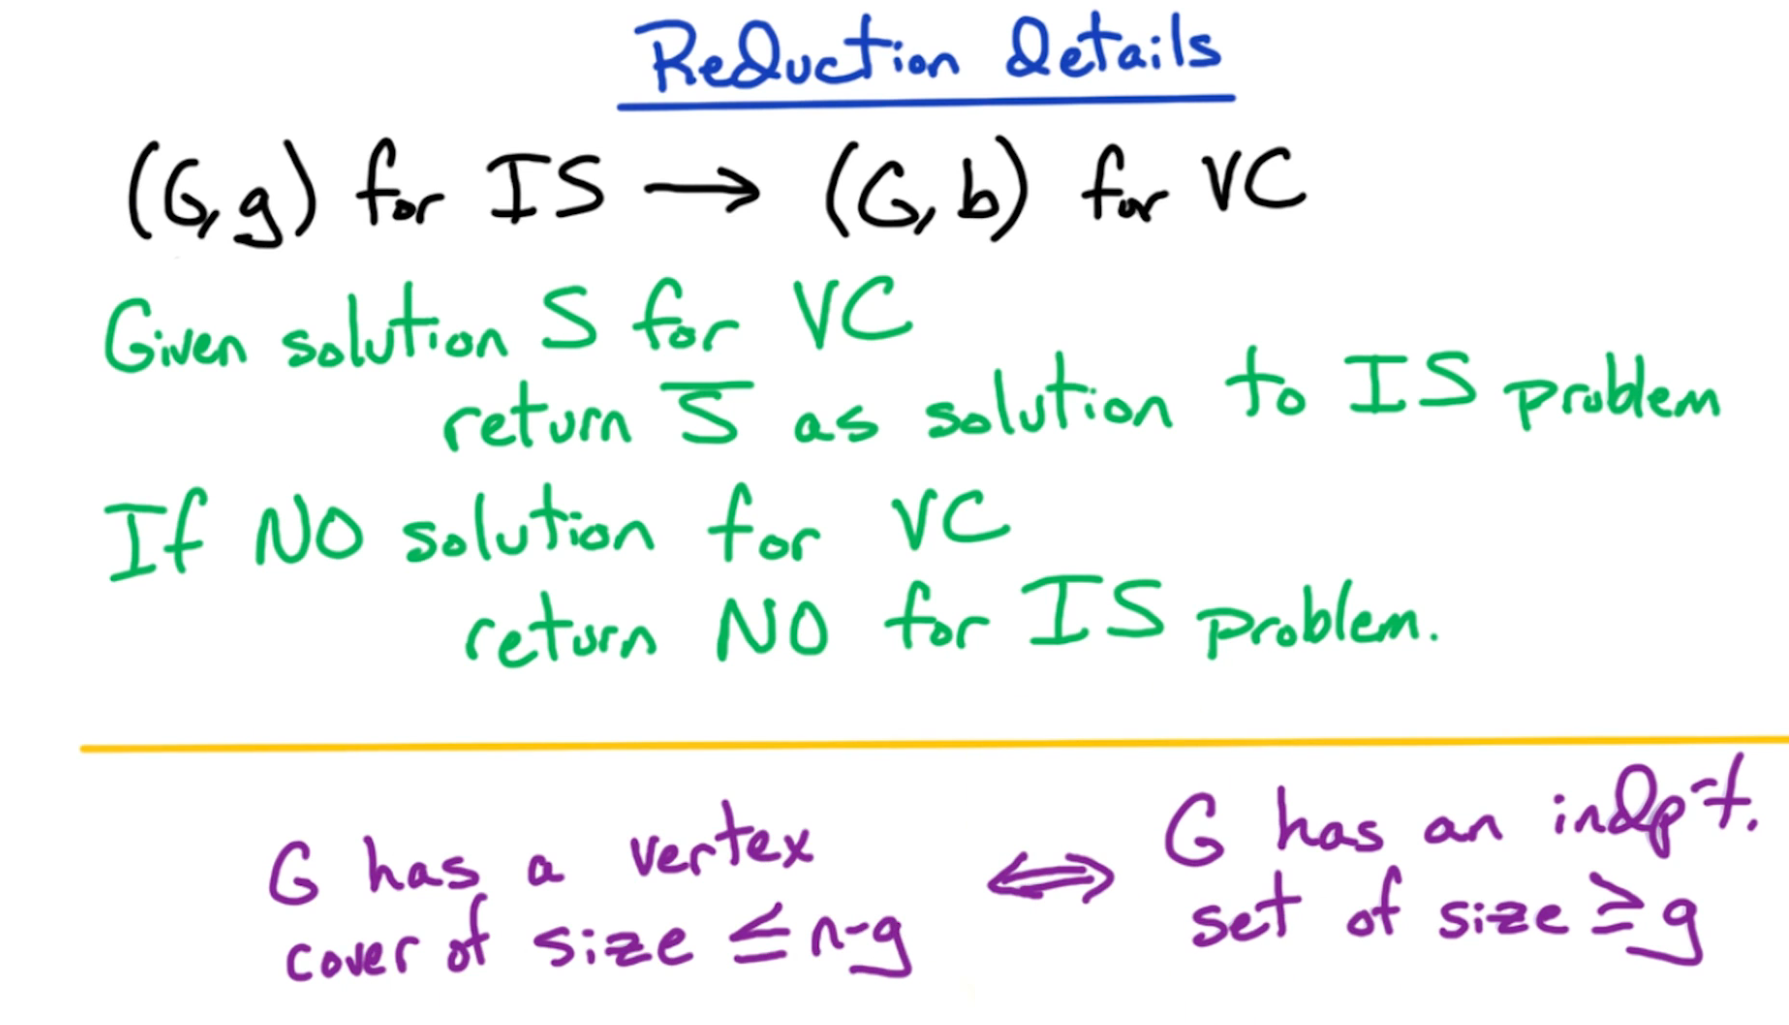 Reduction details
(G,g) for IS → (G,b) for VC
Given solution S for VC
return S̅ as solution to IS problem
If NO solution for VC
return NO for IS problem.
G has a vertex
cover of size ≤ n-g
⟺
G has an indp't.
set of size ≥ g